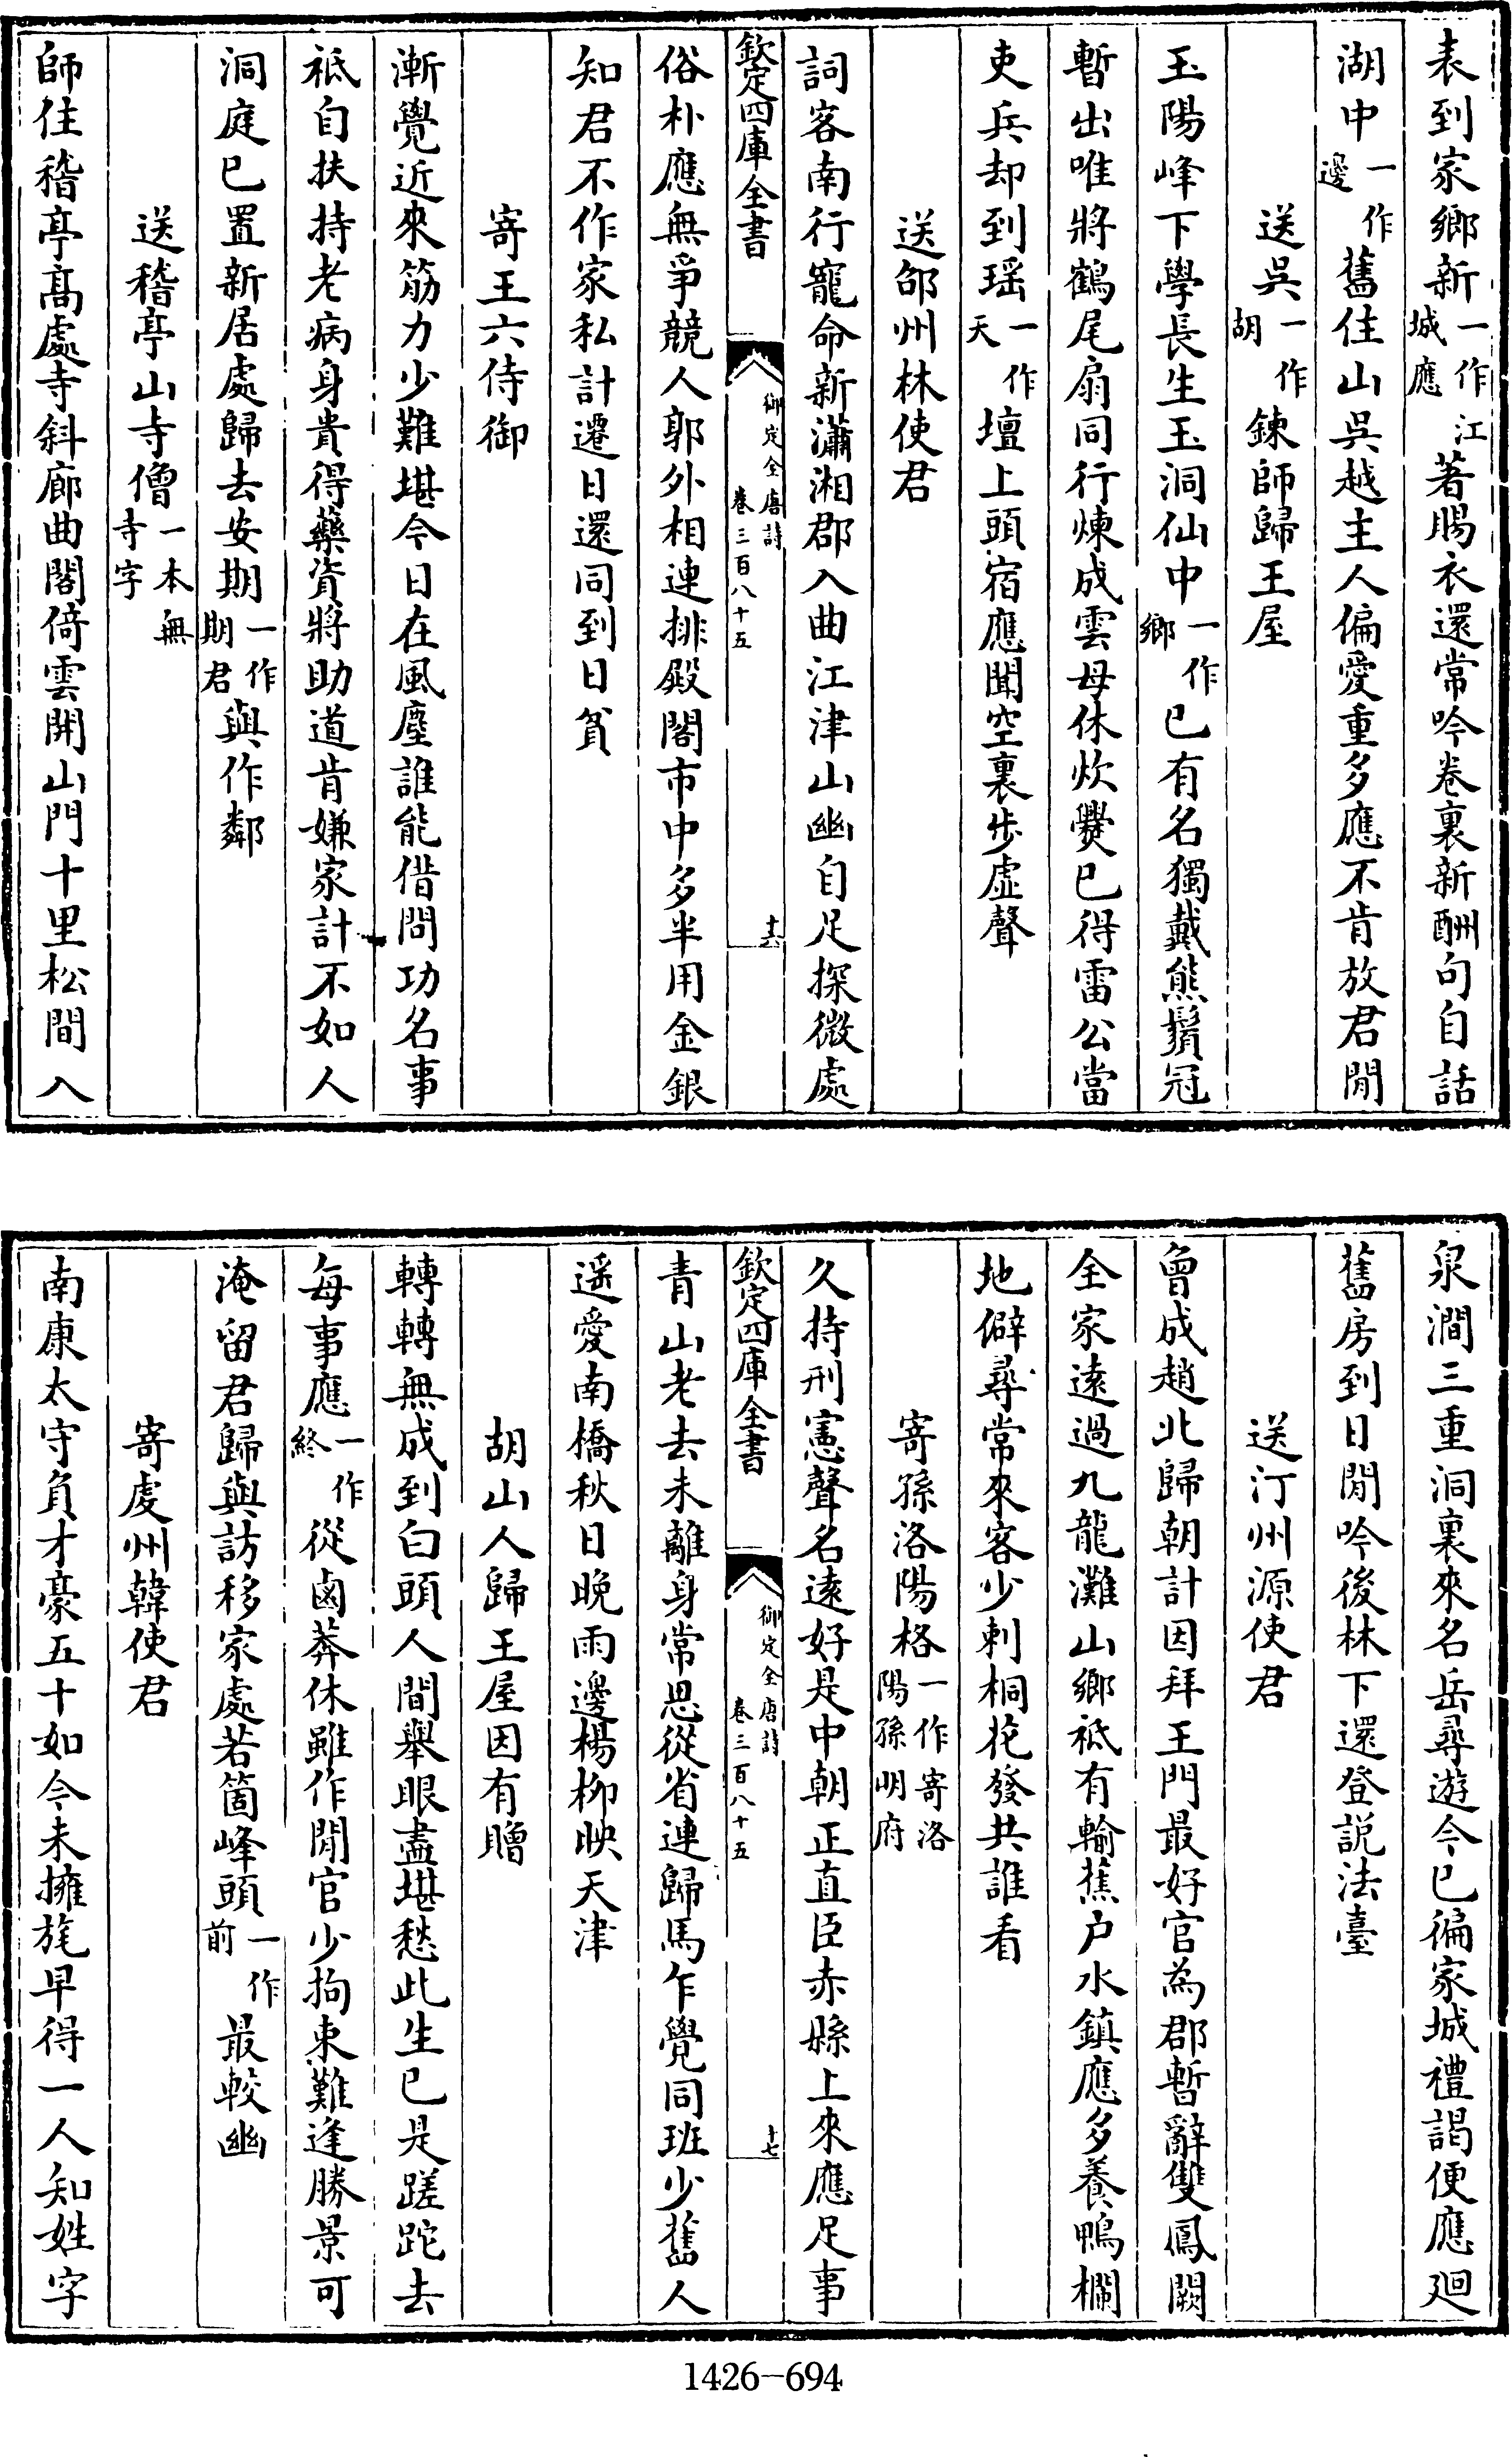 表到家鄉新一作江城應著賜衣還常吟卷裏新酬句自話
湖中一作邊舊住山吳越主人偏愛重多應不肯放君閒
送吳一作胡鍊師歸王屋
玉陽峰下學長生玉洞仙中一作鄉已有名獨戴熊鬚冠
暫出唯將鶴尾扇同行煉成雲母休炊爨已得雷公當
吏兵却到瑤一作天壇上頭宿應聞空裏步虛聲
送邵州林使君
詞客南行寵命新瀟湘郡入曲江津山幽自足探微處
欽定四庫全書
御定全唐詩
卷三百八十五
十六
俗朴應無爭競人郭外相連排殿閣市中多半用金銀
知君不作家私計遷日還同到日貧
寄王六侍御
漸覺近來筋力少難堪今日在風塵誰能借問功名事
祇自扶持老病身貴得藥資將助道肯嫌家計不如人
洞庭已置新居處歸去安期一作期君與作鄰
送稽亭山寺僧一本無寺字
師住稽亭高處寺斜廊曲閣倚雲開山門十里松間入
泉澗三重洞裏來名岳尋遊今已徧家城禮謁便應迴
舊房到日閒吟後林下還登説法臺
送汀州源使君
曾成趙北歸朝計因拜王門最好官為郡暫辭雙鳳闕
全家遠過九龍灘山鄉祇有輸蕉户水鎮應多養鴨欄
地僻尋常來客少刺桐花發共誰看
寄孫洛陽格一作寄洛陽孫明府
久持刑憲聲名遠好是中朝正直臣赤縣上來應足事
欽定四庫全書
御定全唐詩
卷三百八十五
十七
青山老去未離身常思從省連歸馬乍覺同班少舊人
遥愛南橋秋日晚雨邊楊柳映天津
胡山人歸王屋因有贈
轉轉無成到白頭人間舉眼盡堪愁此生已是蹉跎去
每事應一作終從鹵莽休雖作閒官少拘束難逢勝景可
淹留君歸與訪移家處若箇峰頭一作前最較幽
寄虔州韓使君
南康太守負才豪五十如今未擁旄早得一人知姓字
1426-694